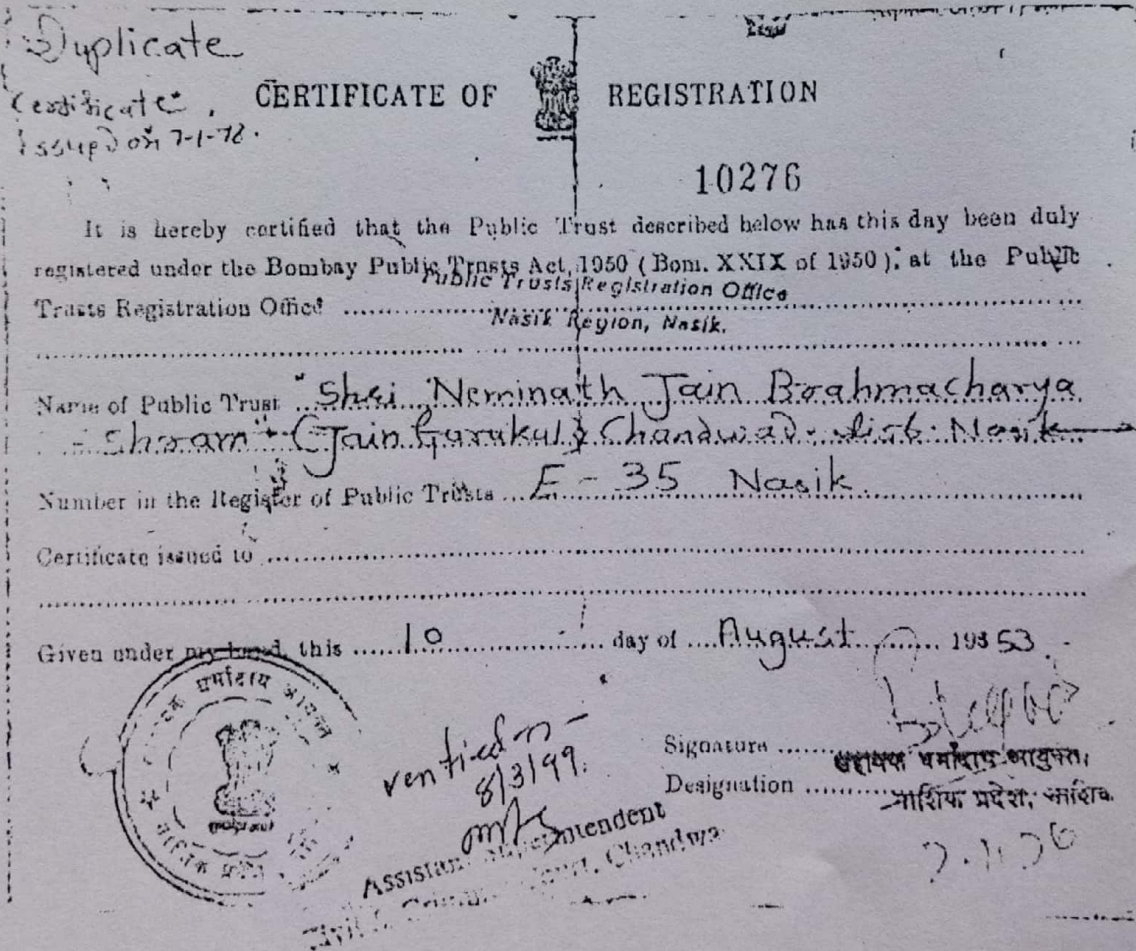 Duplicate
Certificate
issued on 7-1-78.
CERTIFICATE OF REGISTRATION
10276
It is hereby certified that the Public Trust described below has this day been duly
registered under the Bombay Public Trusts Act, 1950 (Bom. XXIX of 1950), at the Public
Public Trusts Registration Office
Trusts Registration Office
Nasik Region, Nasik.
Name of Public Trust "Shri Neminath Jain Brahmacharya
Ashram" (Jain Gurukul) Chandwad. Dist. Nasik
Number in the Register of Public Trusts E - 35 Nasik
Certificate issued to
Given under my hand, this 10 day of August 1953
Signature
सहायक धर्मादाय आयुक्त,
Designation
नाशिक प्रदेश, नाशिक
धर्मादाय आयुक्त
verified on
8/3/99.
Assistant Superintendent
Court, Chandwa